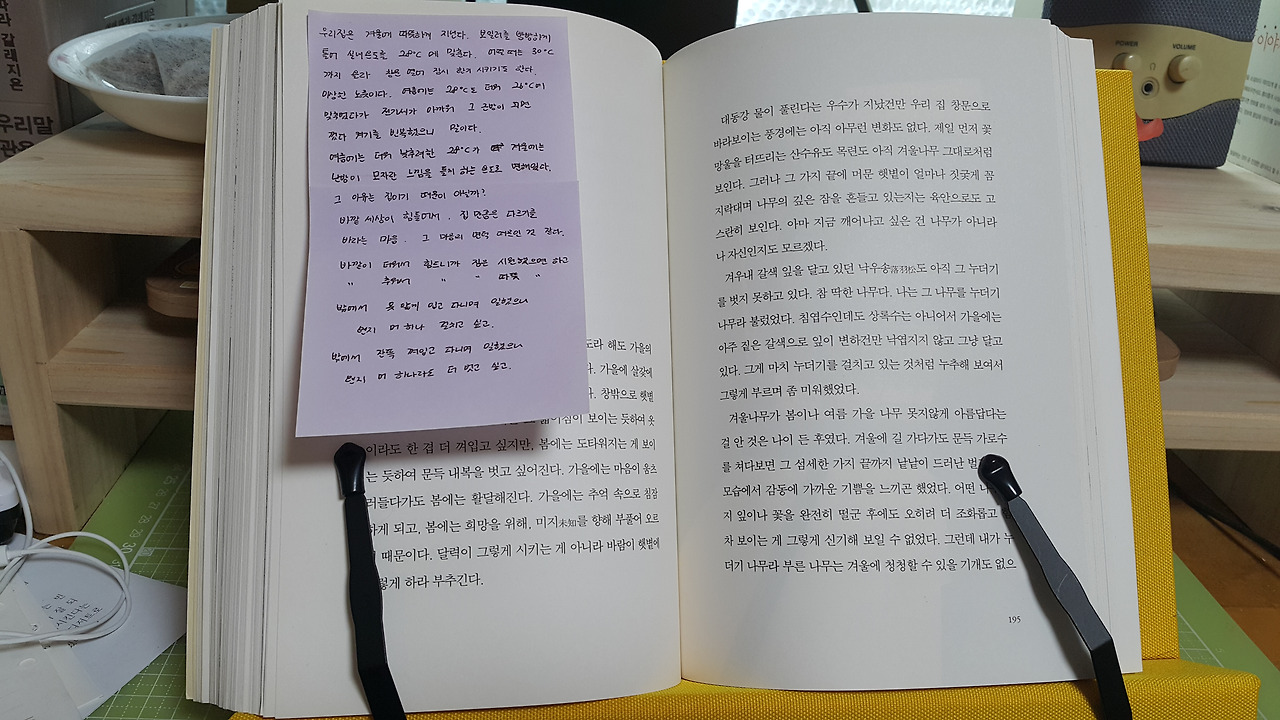 우리집은 겨울에 따뜻하게 지낸다. 보일러를 빵빵하게
틀어 실내온도를 28℃에 맞춘다. 어쩔 때는 30℃
까지 올라 창문 열어 잠시 환기 시키기도 한다.
여름에는 28℃도 더워 26℃에
맞춰었다가 전기세가 아까워 그 근방이 되면
껐다 켜기를 반복했으니 말이다.
여름에는 더워 낮추려한 28℃가 겨울에는
난방이 모자란 느낌을 들게 하는 온도로 변해있다.
그 이유는 집이기 때문이 아닐까?
바깥 세상이 힘들어서. 집 만큼은 다르기를
바라는 마음. 그 마음의 면덕 때문인 것 같다.
바깥이 더워서 힘드니까 집은 시원했으면 하고
" 추워서 " " 따뜻 "
밖에서 옷 얇게 입고 다니며 일했으니
왠지 더 하나 걸치고 싶고.
밖에서 잔뜩 껴입고 다니며 일했으니
왠지 더 하나라도 더 벗고 싶고.
도라 해도 가을의
다. 가을에 살갗에
다. 창밖으로 햇볕
이 보이는 듯하여 옷
이라도 한 겹 더 껴입고 싶지만, 봄에는 도타워지는 게 보이
는 듯하여 문득 내복을 벗고 싶어진다. 가을에는 마음이 움츠
러들다가도 봄에는 활달해진다. 가을에는 추억 속으로 침잠
하게 되고, 봄에는 희망을 위해, 미지未知를 향해 부풀어 오르
때문이다. 달력이 그렇게 시키는 게 아니라 바람이 햇볕에
렇게 하라 부추긴다.
대동강 물이 풀린다는 우수가 지났건만 우리 집 창문으로
바라보이는 풍경에는 아직 아무런 변화도 없다. 제일 먼저 꽃
망울을 터뜨리는 산수유도 목련도 아직 겨울나무 그대로처럼
보인다. 그러나 그 가지 끝에 머문 햇볕이 얼마나 짓궂게 꼼
지락대며 나무의 깊은 잠을 흔들고 있는지는 육안으로도 고
스란히 보인다. 아마 지금 깨어나고 싶은 건 나무가 아니라
나 자신인지도 모르겠다.
겨우내 갈색 잎을 달고 있던 낙우송落羽松도 아직 그 누더기
를 벗지 못하고 있다. 참 딱한 나무다. 나는 그 나무를 누더기
나무라 불렀었다. 침엽수인데도 상록수는 아니어서 가을에는
아주 짙은 갈색으로 잎이 변하건만 낙엽지지 않고 그냥 달고
있다. 그게 마치 누더기를 걸치고 있는 것처럼 누추해 보여서
그렇게 부르며 좀 미워했었다.
겨울나무가 봄이나 여름 가을 나무 못지않게 아름답다는
걸 안 것은 나이 든 후였다. 겨울에 길 가다가도 문득 가로수
를 쳐다보면 그 섬세한 가지 끝까지 낱낱이 드러난 벌
모습에서 감동에 가까운 기쁨을 느끼곤 했었다. 어떤
지 잎이나 꽃을 완전히 떨군 후에도 오히려 더 조화롭고
차 보이는 게 그렇게 신기해 보일 수 없었다. 그런데 내가 누
더기 나무라 부른 나무는 겨울에 청청할 수 있을 기개도 없으
195
POWER
VOLUME
갈래지은
우리말
이야